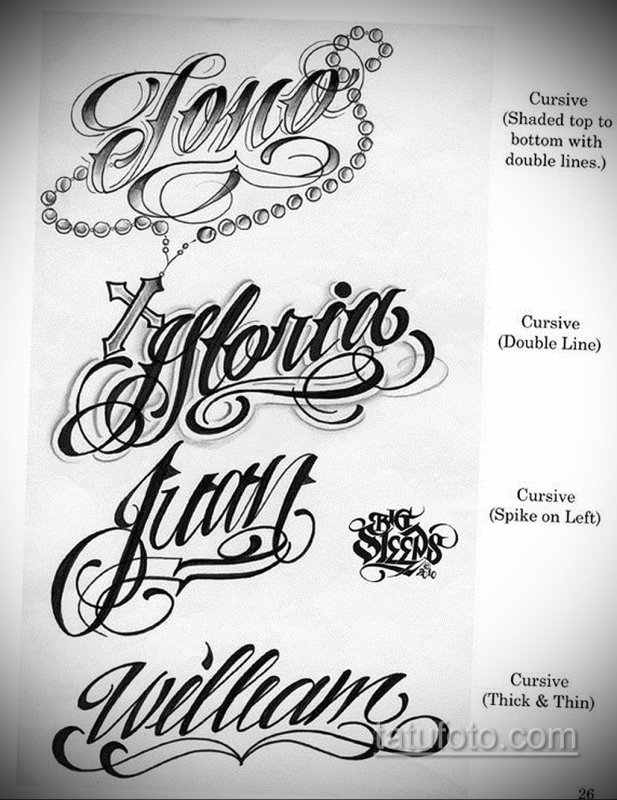 Tono
Cursive
(Shaded top to
bottom with
double lines.)
Gloria
Cursive
(Double Line)
Juan
Cursive
(Spike on Left)
BIG
SLEEPS
©
2010
William
Cursive
(Thick & Thin)
tatufoto.com
26